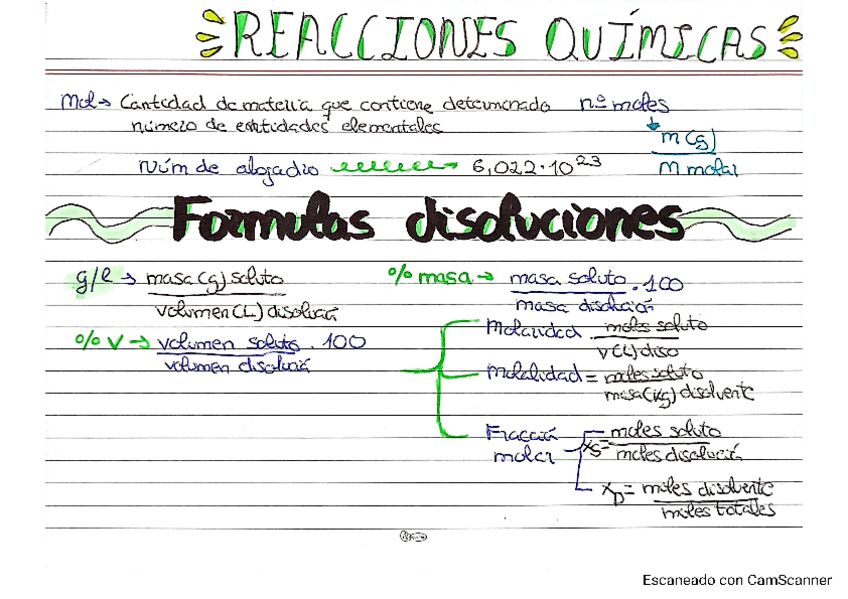 REACCIONES QUÍMICAS
Mol → Cantidad de materia que contiene determinado nº moles
número de entidades elementales
↓
m (g)
M molar
Núm de abogadio → 6,022·10²³
Formulas disoluciones
g/l → masa (g) soluto
volumen (L) disolución
% masa → masa soluto · 100
masa disolución
% V → volumen soluto · 100
volumen disolución
Molaridad moles soluto
V (L) diso
Molalidad = moles soluto
masa (kg) disolvente
Fracción molar
xs = moles soluto
moles disolución
xD = moles disolvente
moles totales
Escaneado con CamScanner